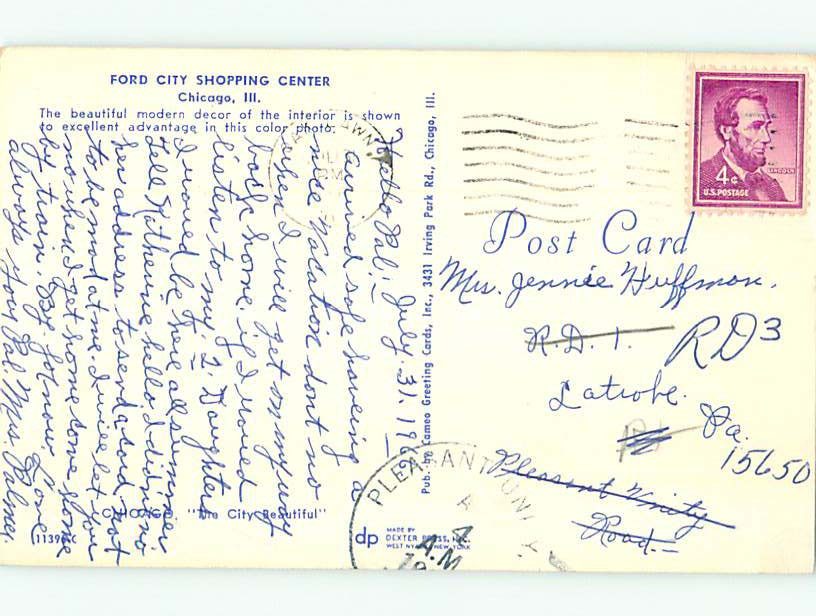 FORD CITY SHOPPING CENTER
Chicago, Ill.
The beautiful modern decor of the interior is shown
to excellent advantage in this color photo.
Hello Pal:— July. 31. 1966
arrived safe haveing a
nice vacation dont no
when I will get on my way
back home. if I woued
listen to my 2. Daughter
I woued be here all summer
tell Katherine hello I didn no
her address to send a card. not
to be mad at me. I will let you
no when I get home. come home
by train. By. for now. Love
always your Pal. Mrs. Palmer
CHICAGO, "The City Beautiful"
11396-C
Pub. by Cameo Greeting Cards, Inc., 3431 Irving Park Rd., Chicago, Ill.
dp
MADE BY
DEXTER PRESS, INC.
WEST NYACK, NEW YORK
4¢
LINCOLN
U.S. POSTAGE
Post Card
Mrs. Jennie Huffman.
R.D. 1. RD3
Latrobe.
Pa.
15650
Pleasant Unity
Road.—
PLEASANT UNITY
A
4
AM